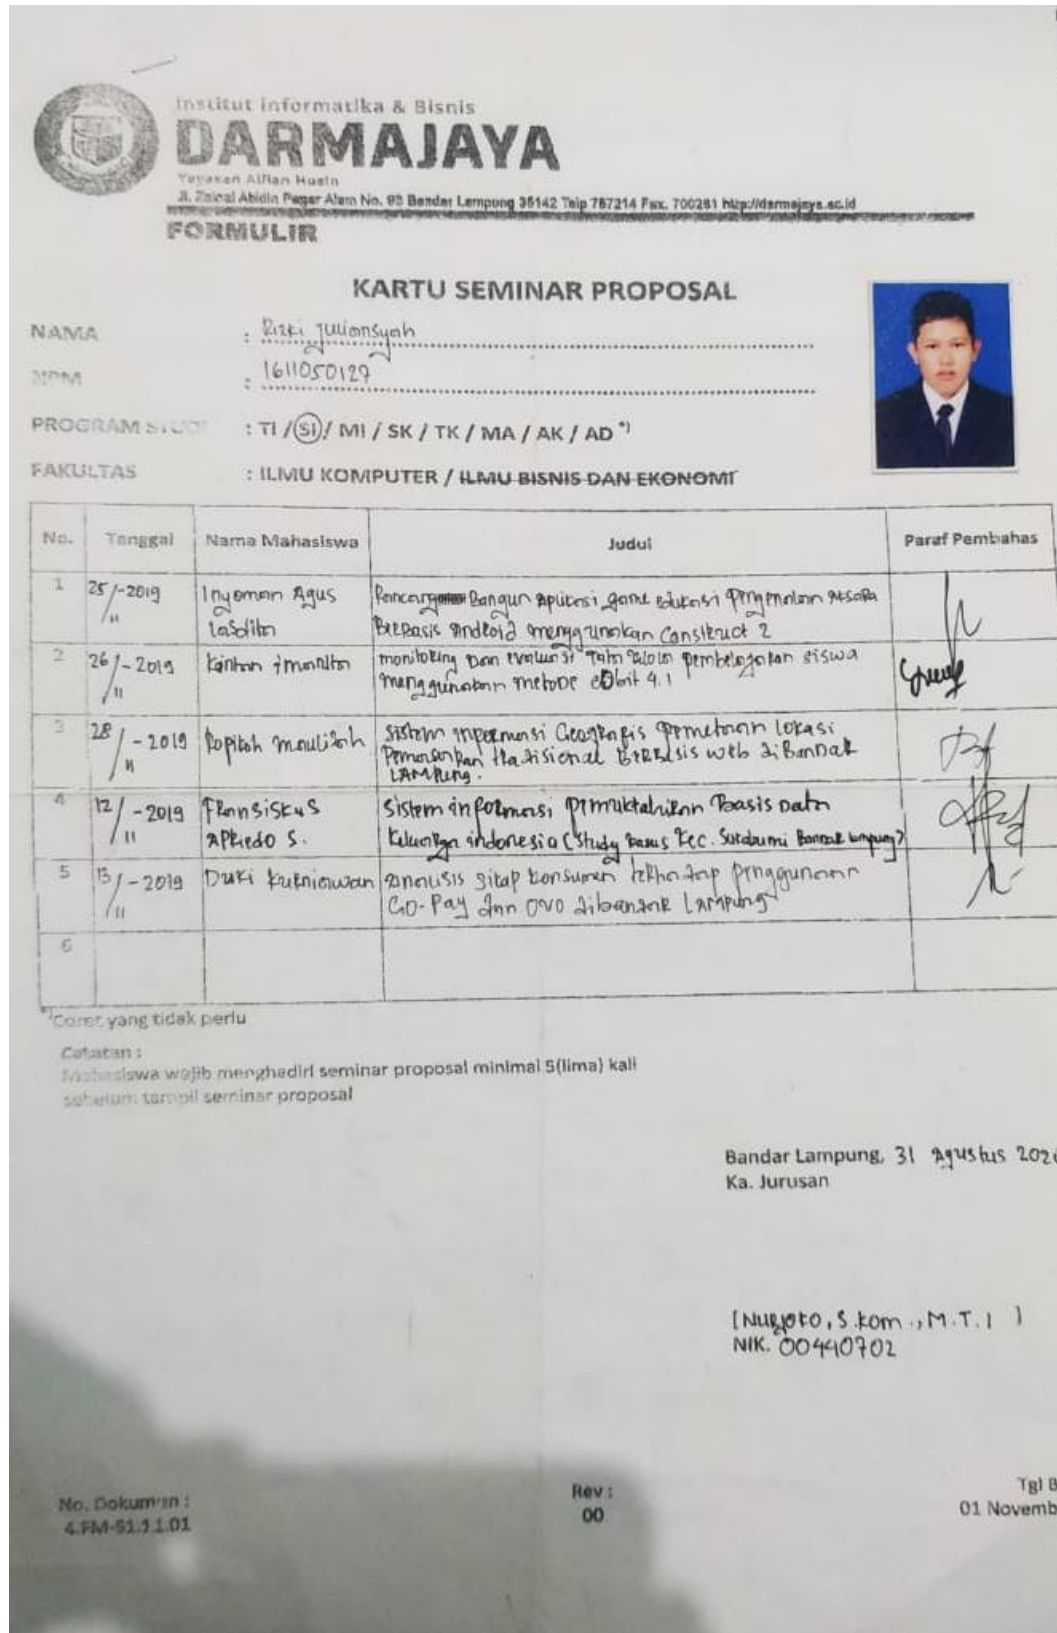 Institut Informatika & Bisnis
DARMAJAYA
Yayasan Alfian Husin
Jl. Zainal Abidin Pagar Alam No. 93 Bandar Lampung 35142 Telp 787214 Fax. 700261 http://darmajaya.ac.id
FORMULIR
KARTU SEMINAR PROPOSAL
NAMA : Rizki Juliansyah
NPM : 1611050127
PROGRAM STUDI : TI / SI / MI / SK / TK / MA / AK / AD *)
FAKULTAS : ILMU KOMPUTER / ILMU BISNIS DAN EKONOMI
No. Tanggal Nama Mahasiswa Judul Paraf Pembahas
1 25/11-2019 Inyoman Agus Bangun Aplikasi game Edukasi Pengenalan Aksara
Berbasis Android menggunakan Construct 2
2 26/11-2019 monitoring Dan evaluasi Tata pembelajaran siswa
menggunakan metode cobit 4.1
3 28/11-2019 Sistem informasi Geografis pemetaan lokasi
tradisional Berbasis web di Bandar
LAMPung.
4 12/11-2019 FRansiskus Sistem informasi pemuktahiran Basis Data
APRiedo S. Keluarga indonesia (Study kasus Kec. Sukabumi Bandar Lampung)
5 13/11-2019 Kurniawan analisis sikap konsumen terhadap penggunaan
GO-Pay dan OVO dibandar Lampung
6
*)Coret yang tidak perlu
Catatan :
Mahasiswa wajib menghadiri seminar proposal minimal 5(lima) kali
sebelum tampil seminar proposal
Bandar Lampung, 31 Agustus 202
Ka. Jurusan
[Nurjoko, S.kom., M.T.I ]
NIK. 00440702
No. Dokumen :
4.FM-S1.11.01
Rev :
00
Tgl B
01 Novemb